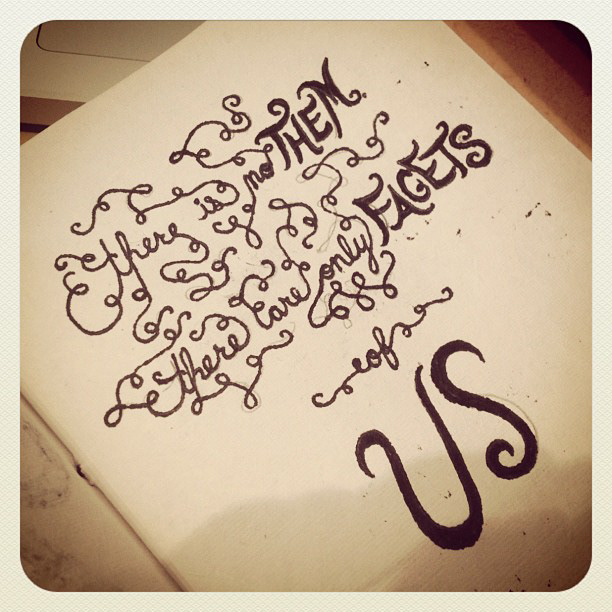 there is no THEM
there are only FACETS
of
US